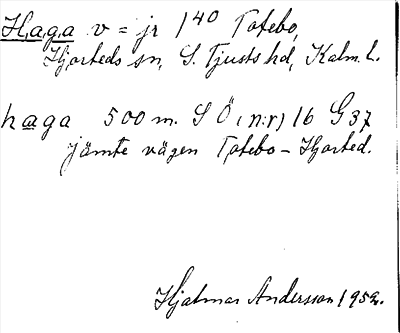 Haga v = jr 1⁴⁰ Totebo,
Hjorteds sn, S. Tjusts hd, Kalm. l.
haga 500 m. S Ö (n:r) 16 G 37
jämte vägen Totebo - Hjorted.
Hjalmar Andersson 1952.